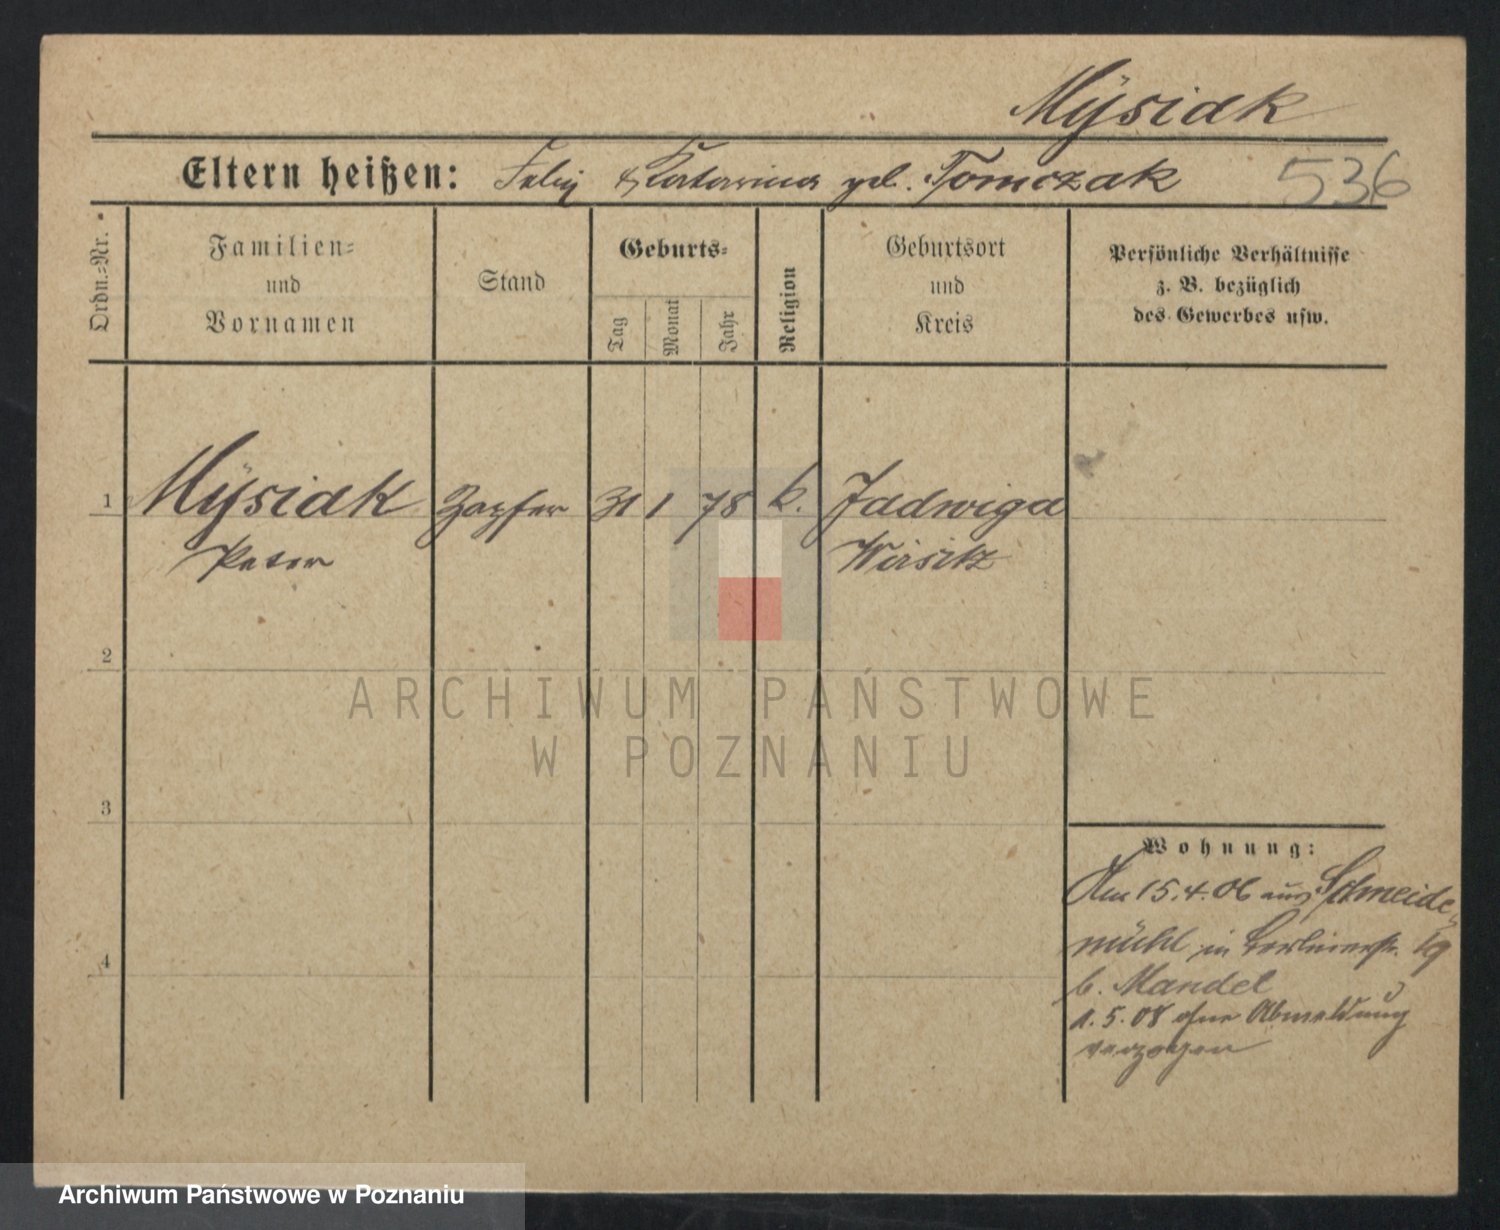 Mÿsiak
Eltern heißen: Felix & Katarina geb. Tomczak 536
Ordn.-Nr.
Familien-
und
Vornamen
Stand
Geburts-
Tag
Monat
Jahr
Religion
Geburtsort
und
Kreis
Persönliche Verhältnisse
z. B. bezüglich
des Gewerbes usw.
1 Mÿsiak Zapfer 31 1 78 k. Jadwiga
Peter Wirsitz
2
ARCHIWUM PAŃSTWOWE
W POZNANIU
3
Wohnung:
Am 15.4.06 aus Schneide-
mühl in Berlinerstr. 19
4
b. Mandel
1.5.08 ohne Abmeldung
verzogen
Archiwum Państwowe w Poznaniu